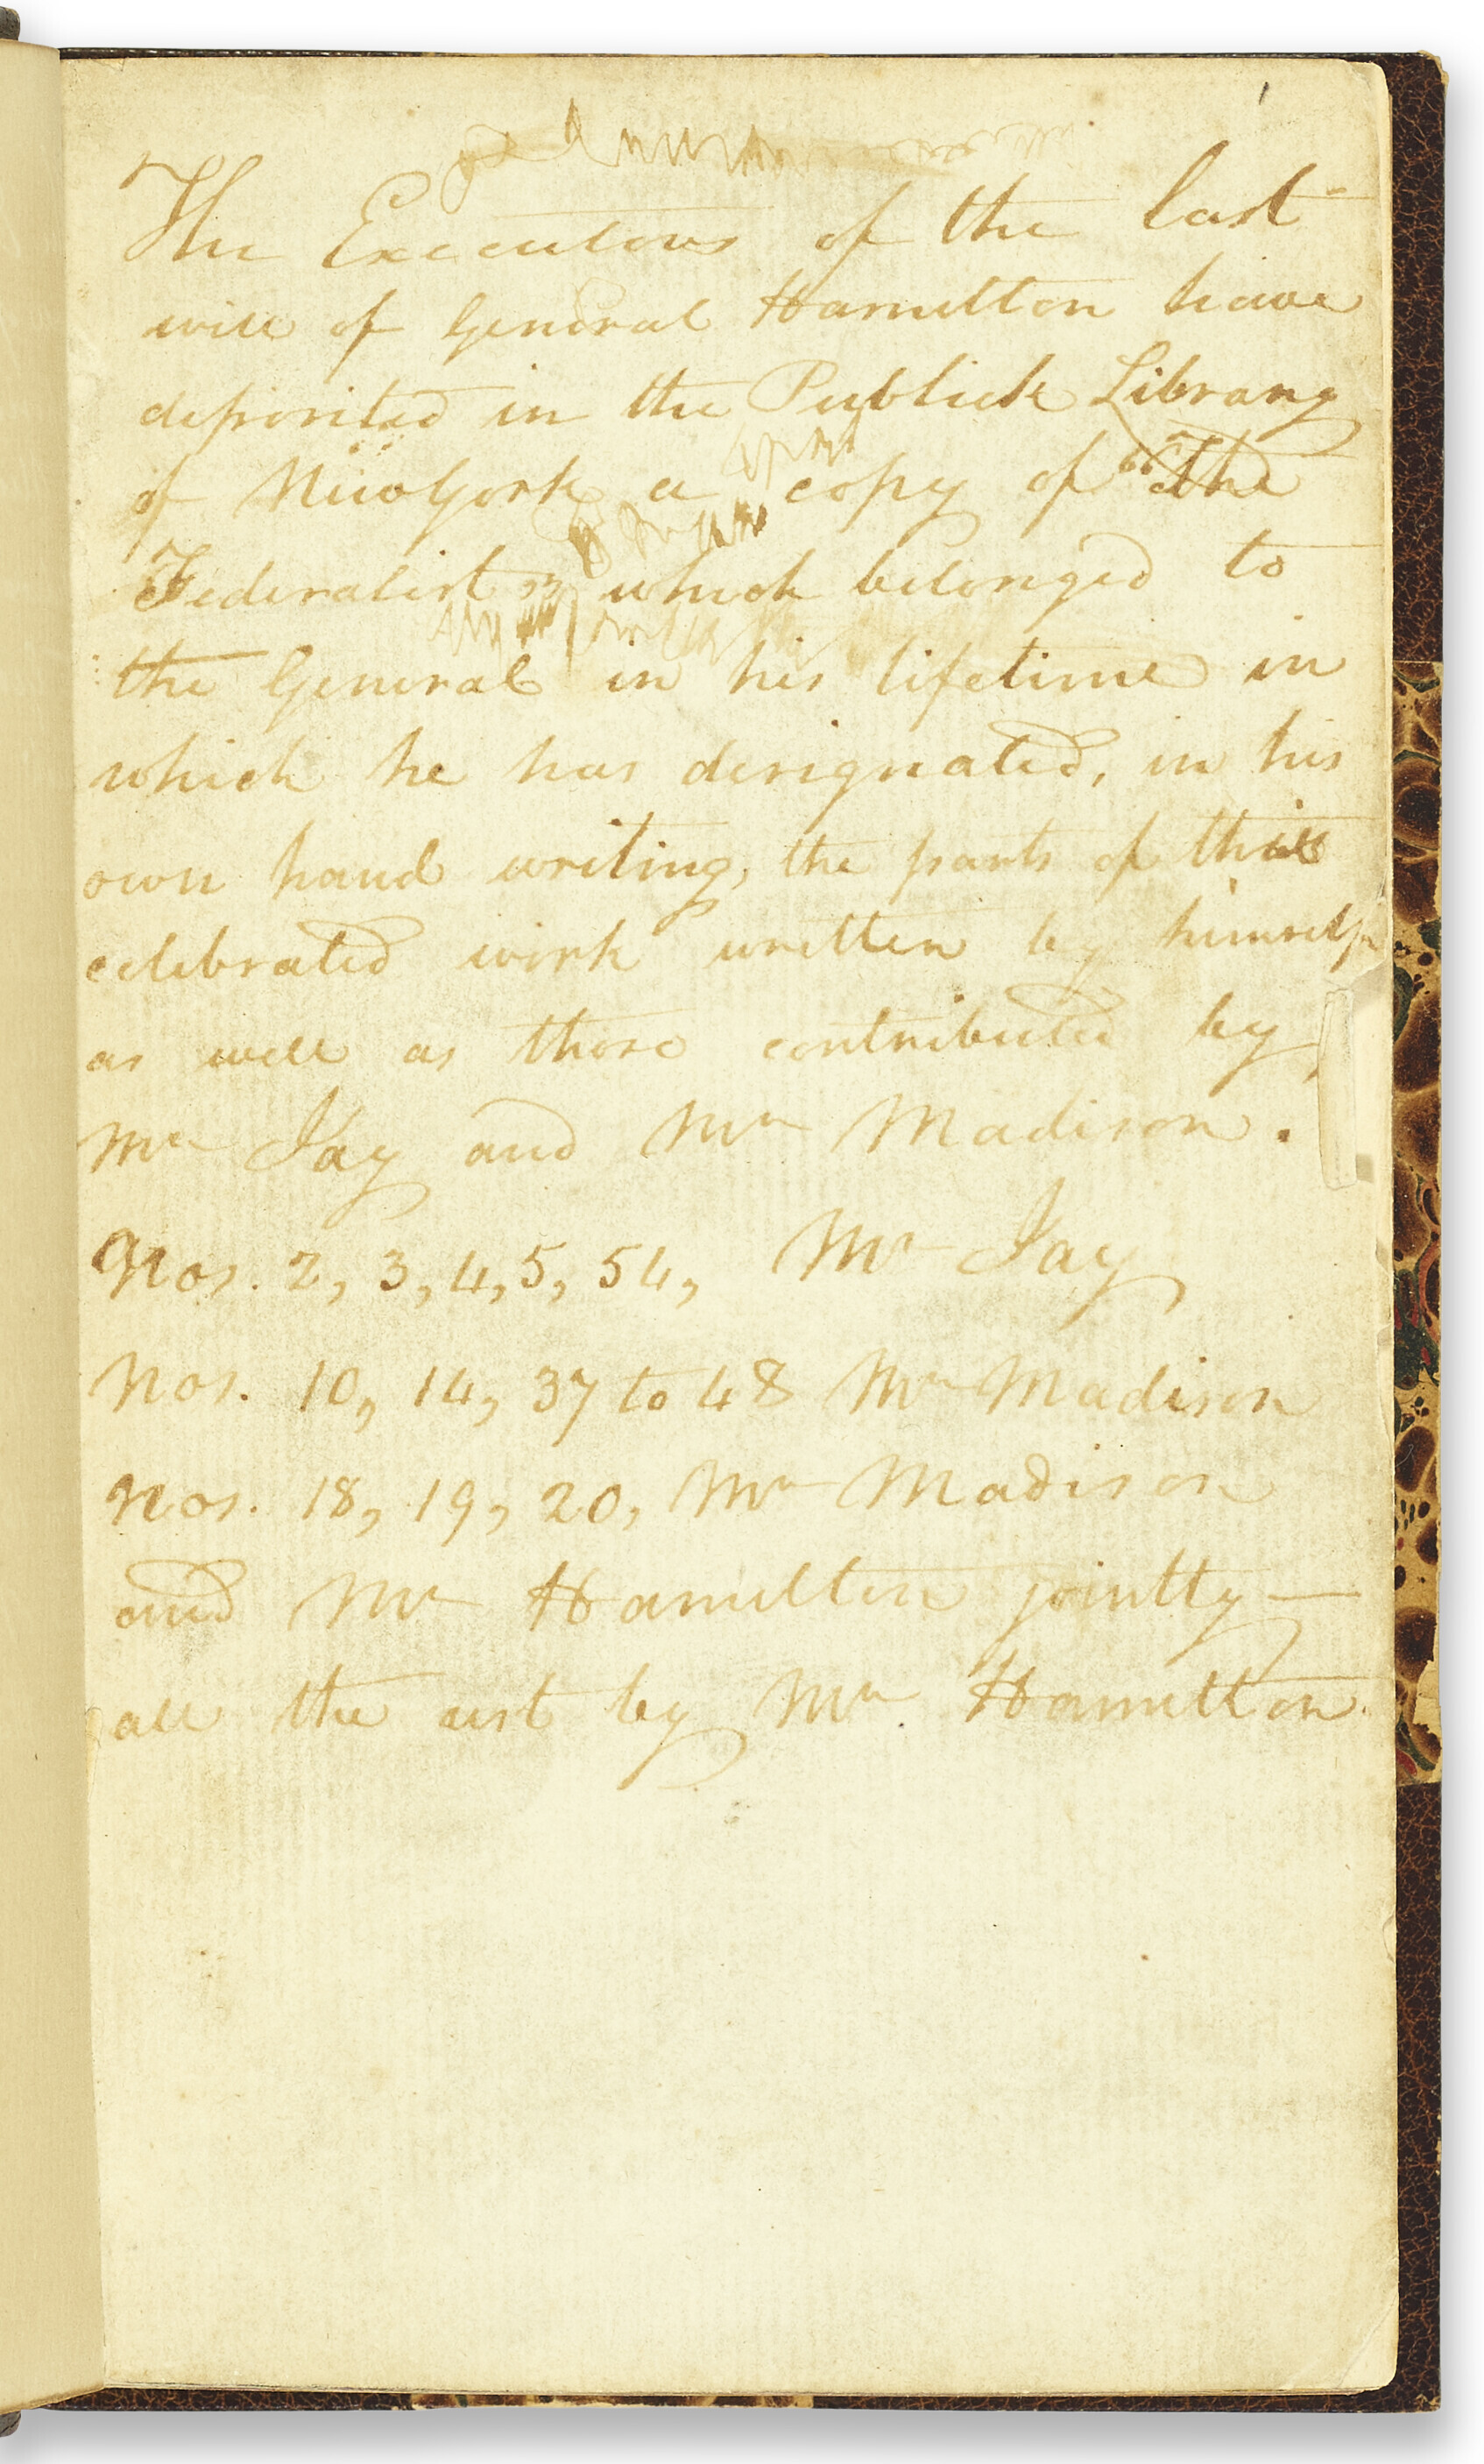 The Executors of the last
will of General Hamilton have
deposited in the Publick Library
of New York a copy of "The
Federalist" which belonged to
the General in his lifetime in
which he has designated, in his
own hand writing, the parts of this
celebrated work written by himself
as well as those contributed by
Mr Jay and Mr Madison.
Nos. 2, 3, 4, 5, 54, Mr Jay
Nos. 10, 14, 37 to 48 Mr Madison
Nos. 18, 19, 20, Mr Madison
and Mr Hamilton jointly —
all the rest by Mr Hamilton.